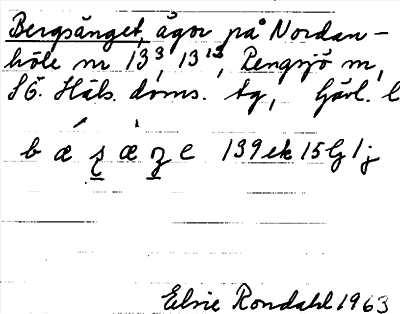 Bergsänget, ägor på Nordan-
höle nr 13³, 13¹³, Rengsjö sn,
SÖ. Häls. doms. tg, Gävl. l
b æ ʂ æ ʐ e 139ek 15G1j
Elsie Rondahl 1963